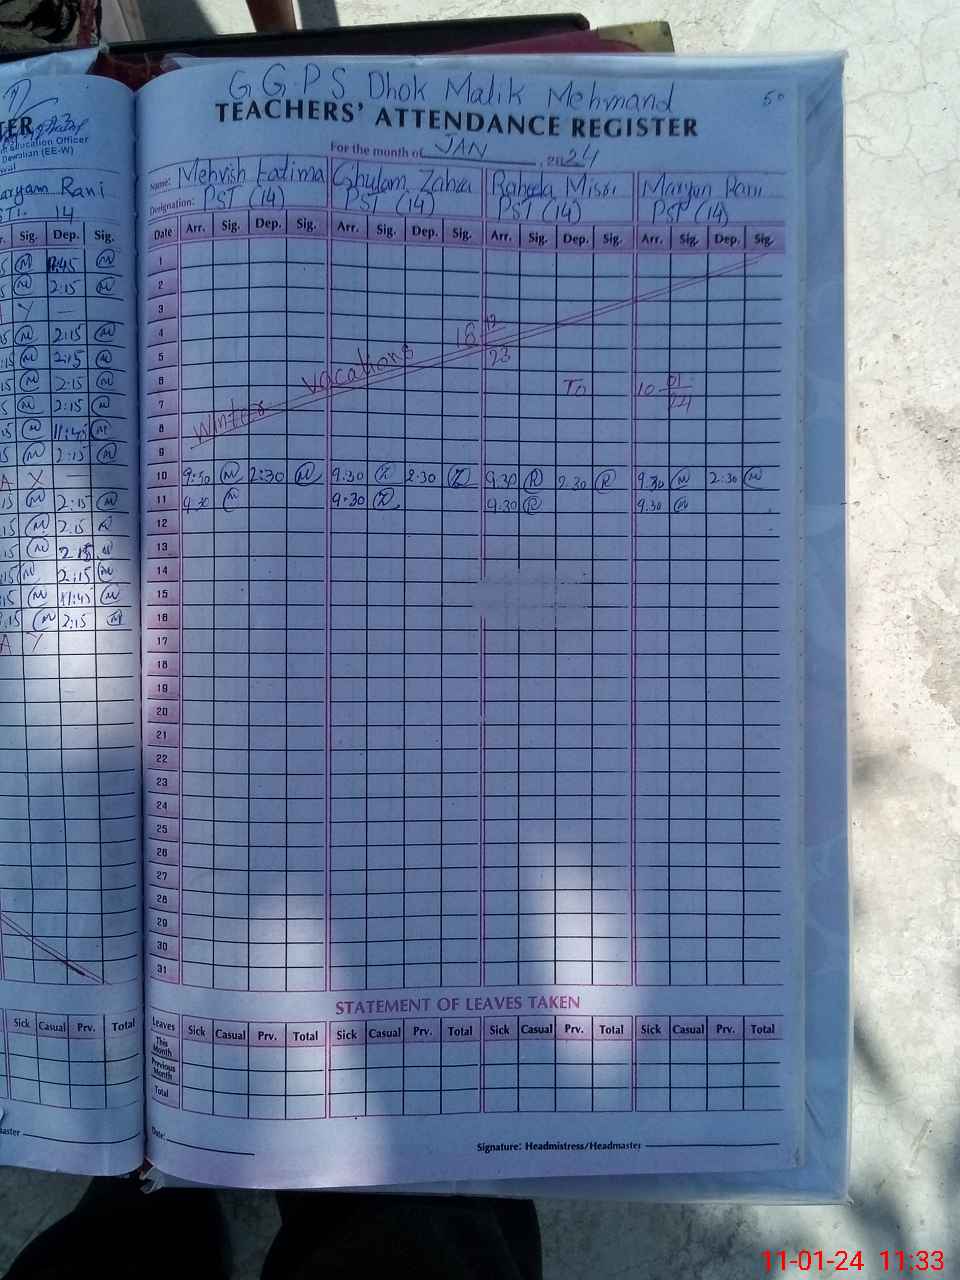 G.G.P.S Dhok Malik Mehmand
50
TEACHERS' ATTENDANCE REGISTER
For the month of JAN, 2024
Name: Mehvish Fatima Ghulam Zahra Maryam Rani
Designation: PST (14) PST (14) PST (14) PST (14)
Date Arr. Sig. Dep. Sig. Arr. Sig. Dep. Sig. Arr. Sig. Dep. Sig. Arr. Sig. Dep. Sig.
1
2
3
4
5
6
7
8
9
Winter vacations 18 12/23 To 10 01/24
10 9:30 M 2:30 M 9:30 Z 2:30 Z 9:30 R 2:30 R 9:30 M 2:30 M
11 9:30 M 9:30 Z 9:30 R 9:30 M
12
13
14
15
16
17
18
19
20
21
22
23
24
25
26
27
28
29
30
31
STATEMENT OF LEAVES TAKEN
Leaves Sick Casual Prv. Total Sick Casual Prv. Total Sick Casual Prv. Total Sick Casual Prv. Total
This Month
Previous Month
Total
Date:
Signature: Headmistress/Headmaster
TER
Education Officer
Dewalian (EE-W)
aryam Rani
14
Sig. Dep. Sig.
M 11:45 M
M 2:15 M
M 2:15 M
M 2:15 M
M 2:15 M
M 2:15 M
M 11:45 M
M 2:15 M
A X —
M 2:15 M
M 2:15
M 2:15 M
M 2:15 M
M 11:45 M
M 2:15 M
A
Sick Casual Prv. Total
aster
11-01-24 11:33